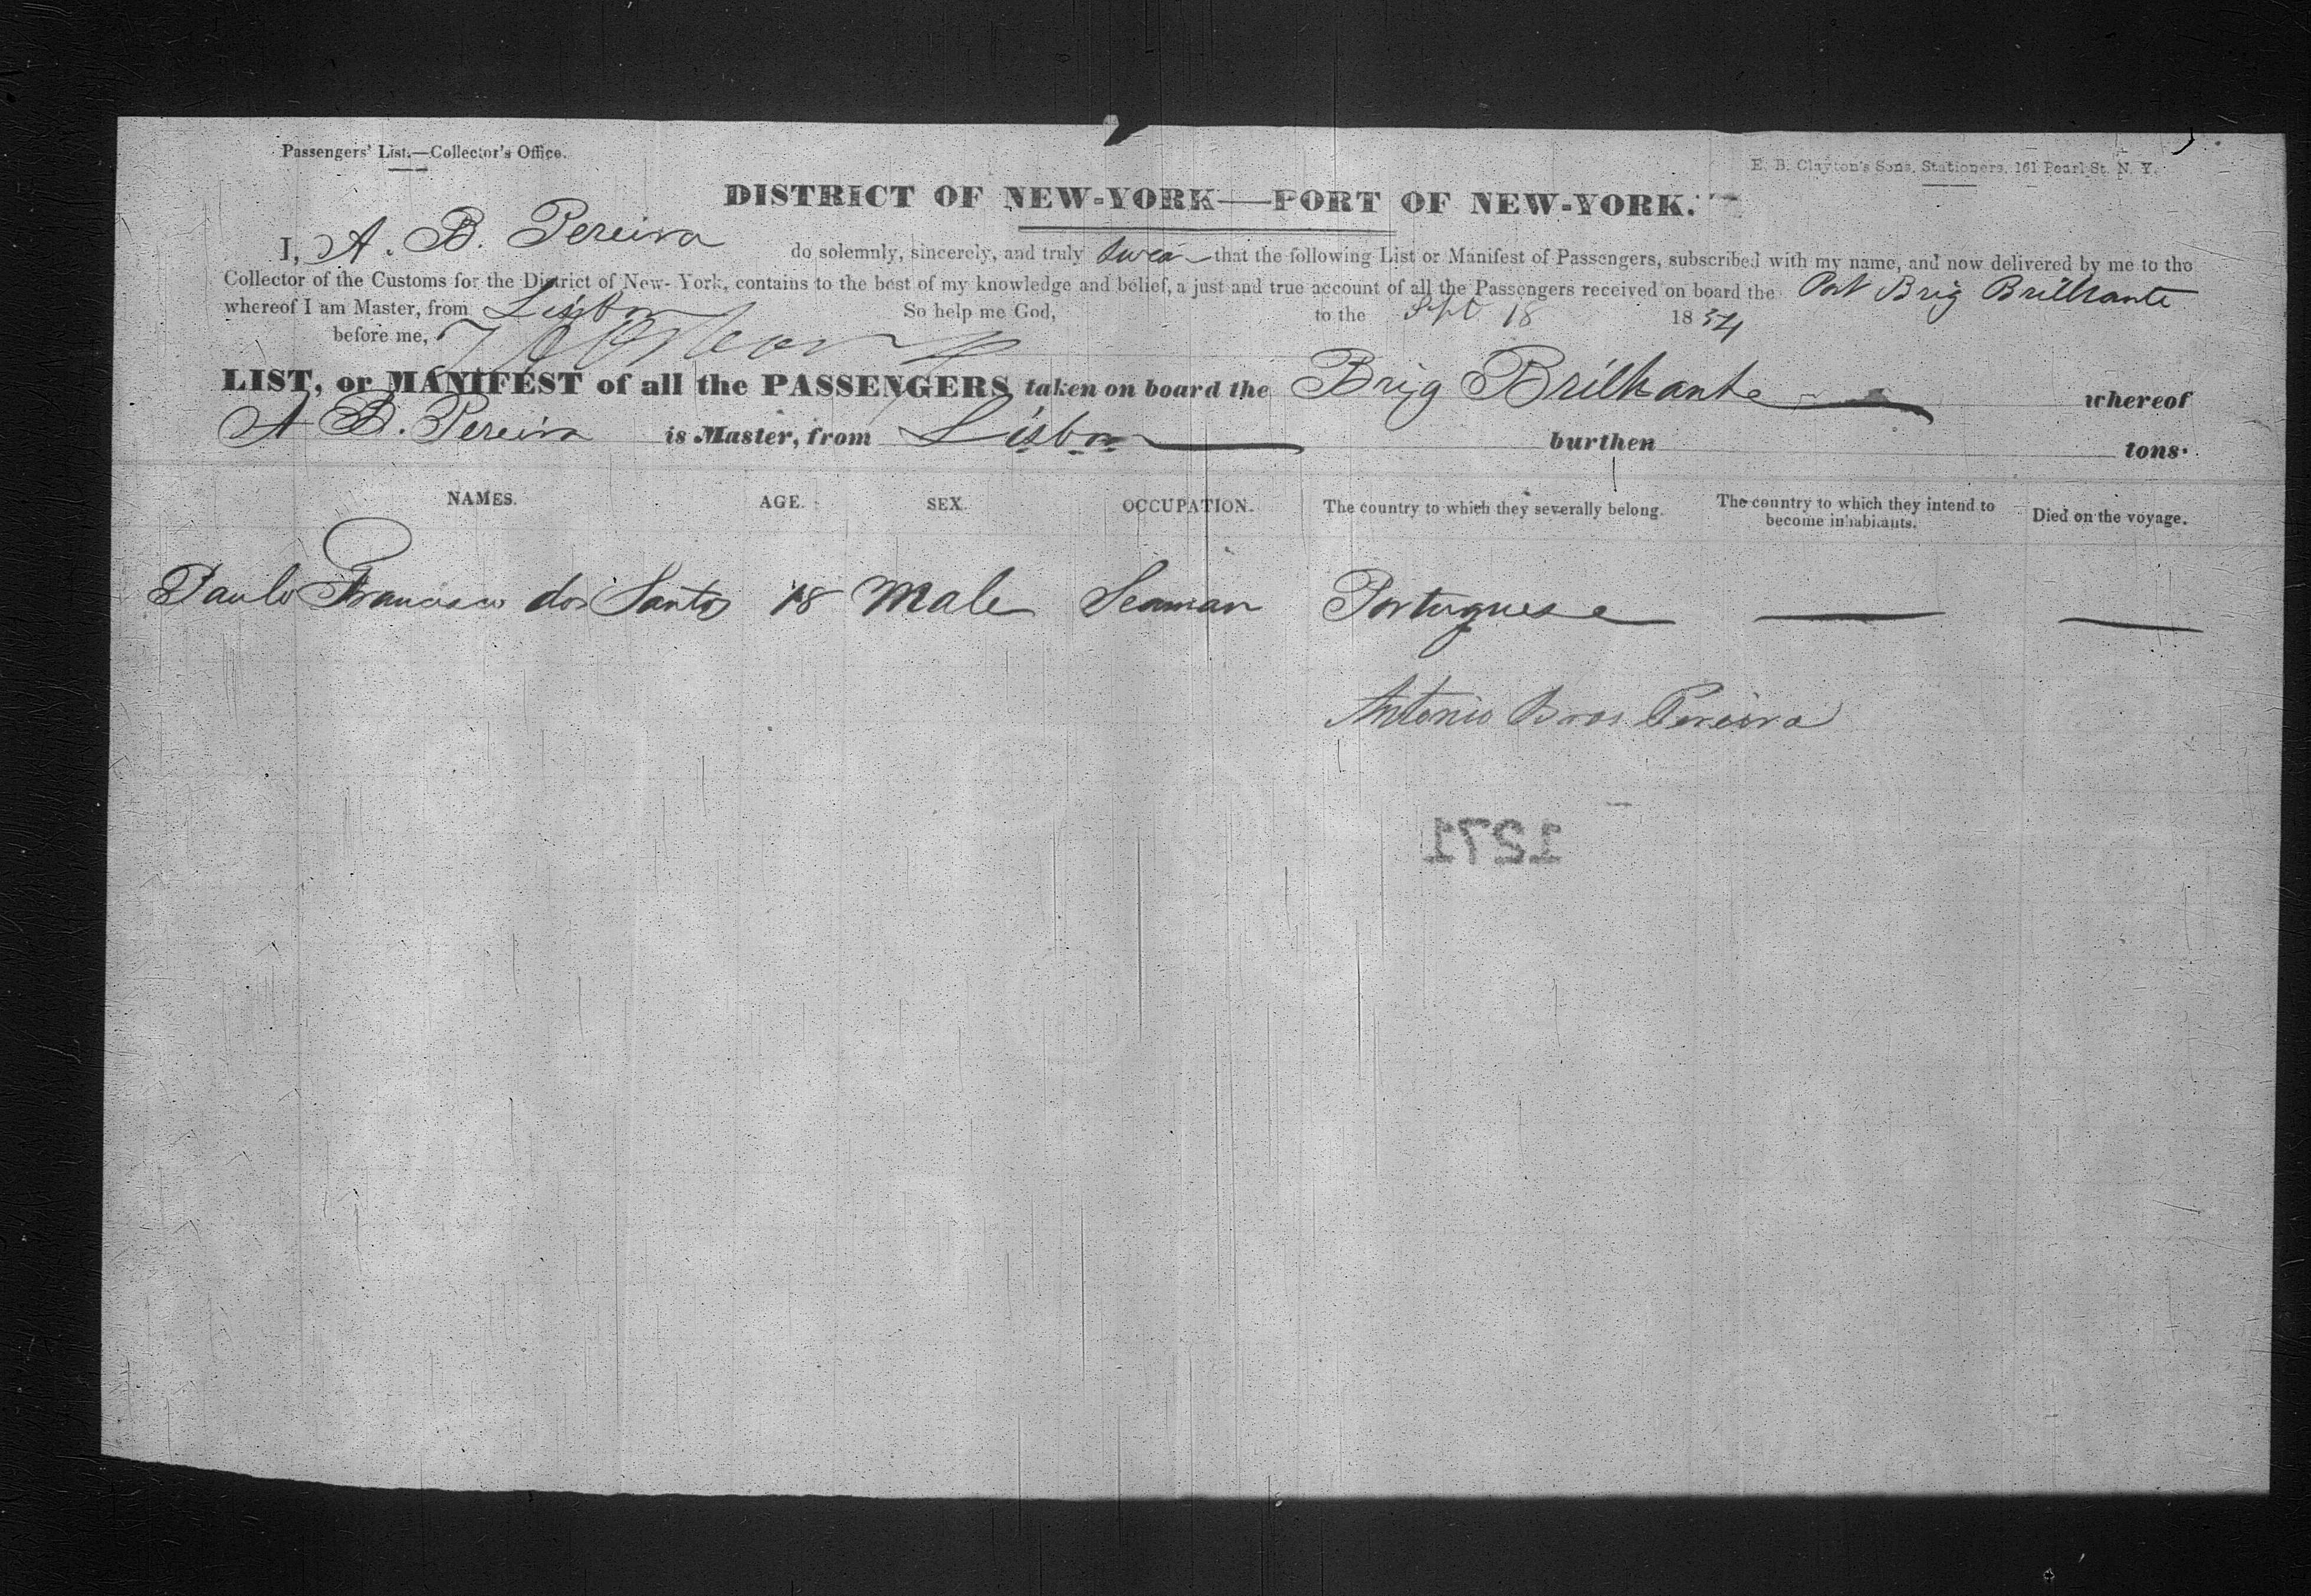 Passengers' List.—Collector's Office.
E. B. Clayton's Sons, Stationers, 161 Pearl St. N. Y.
DISTRICT OF NEW-YORK—PORT OF NEW-YORK.
I, A. B. Pereira do solemnly, sincerely, and truly swear that the following List or Manifest of Passengers, subscribed with my name, and now delivered by me to the
Collector of the Customs for the District of New-York, contains to the best of my knowledge and belief, a just and true account of all the Passengers received on board the Port Brig Brilhante
whereof I am Master, from Lisbon So help me God, to the Sept 18 1854
before me,
LIST, or MANIFEST of all the PASSENGERS taken on board the Brig Brilhante whereof
A B. Pereira is Master, from Lisbon burthen tons.
NAMES. AGE. SEX. OCCUPATION. The country to which they severally belong. The country to which they intend to become inhabitants. Died on the voyage.
Paulo Francisco dos Santos 18 Male Seaman Portuguese
Antonio Bros Pereira
1271